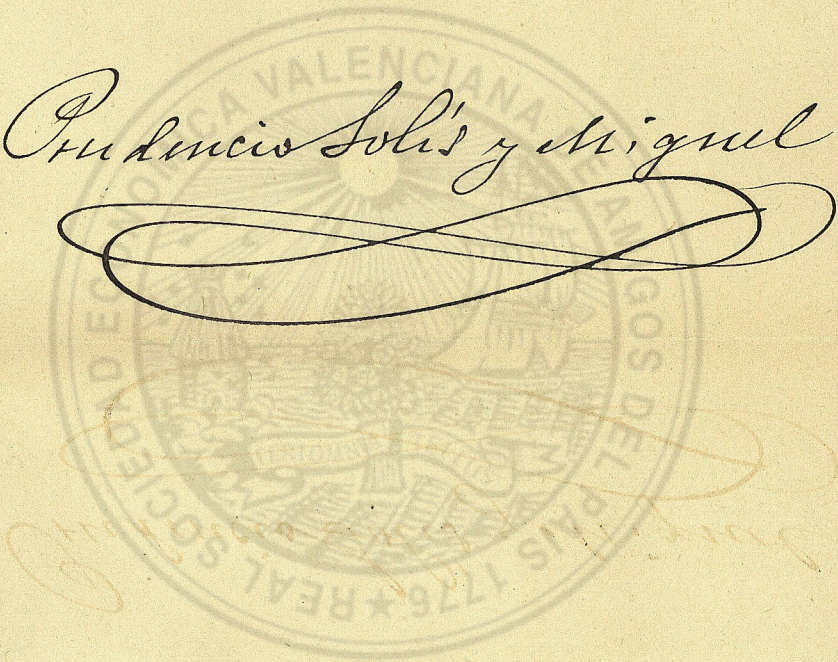 Prudencio Solís y Miguel
REAL SOCIEDAD ECONOMICA VALENCIANA DE AMIGOS DEL PAIS 1776